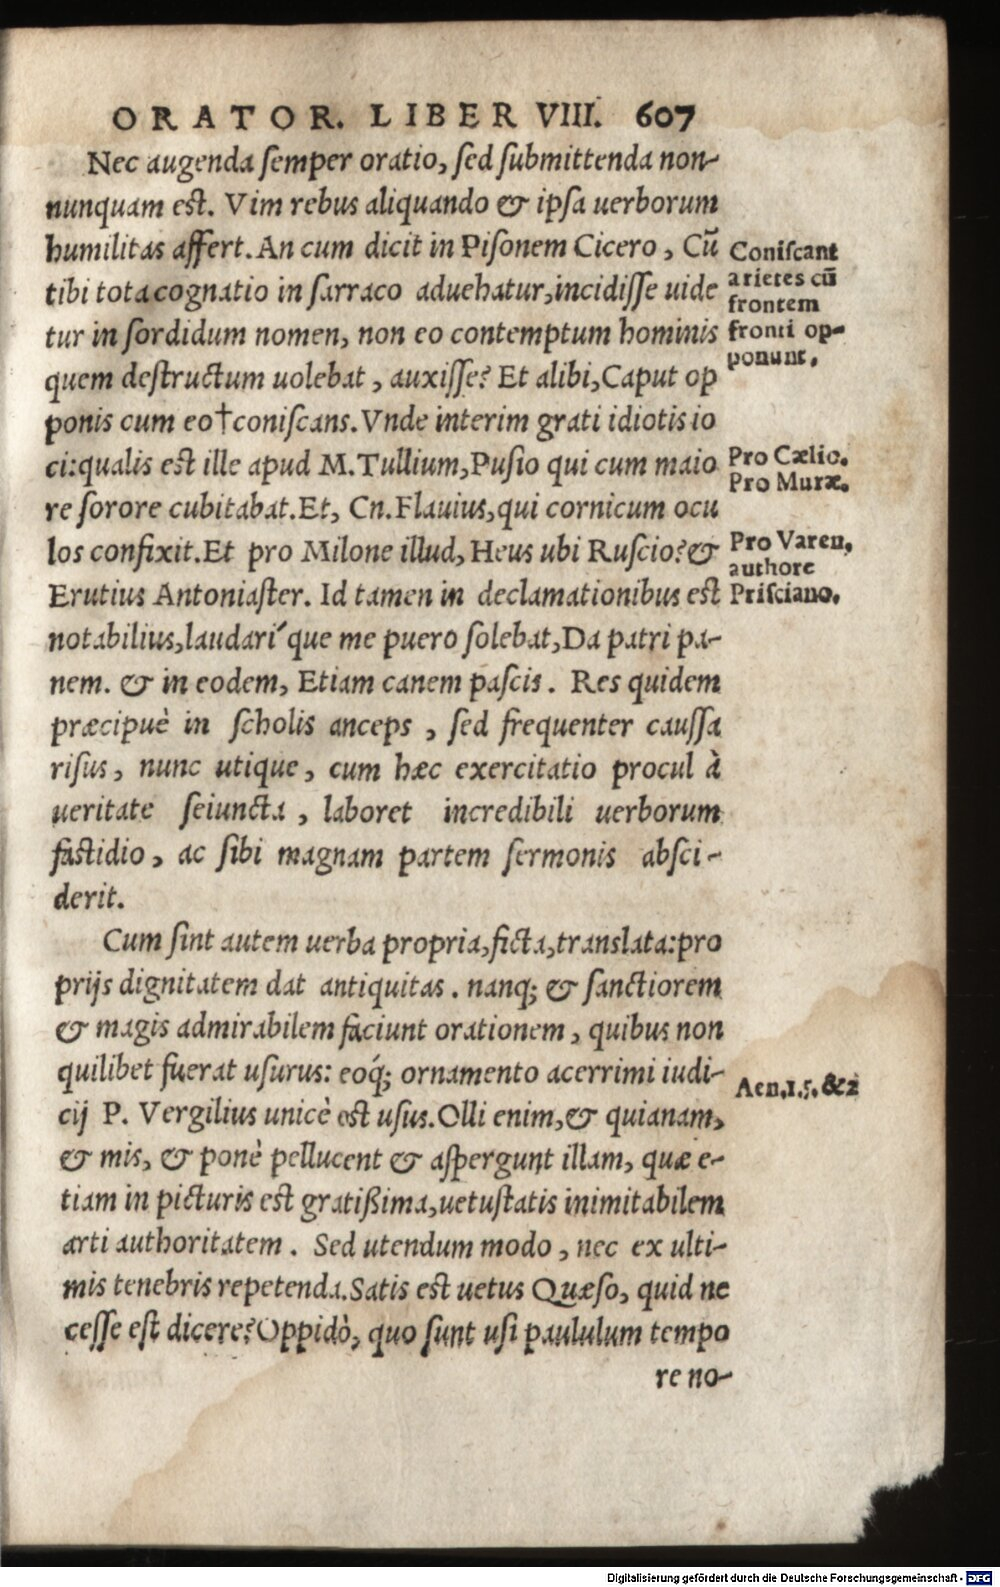 ORATOR. LIBER VIII. 607
Nec augenda semper oratio, sed submittenda non-
nunquam est. Vim rebus aliquando & ipsa uerborum
humilitas affert. An cum dicit in Pisonem Cicero, Cū
tibi tota cognatio in sarraco aduehatur, incidisse uide
tur in sordidum nomen, non eo contemptum hominis
quem destructum uolebat, auxisse? Et alibi, Caput op
ponis cum eo†coniscans. Vnde interim grati idiotis io
ci: qualis est ille apud M. Tullium, Pusio qui cum maio
re sorore cubitabat. Et, Cn. Flauius, qui cornicum ocu
los confixit. Et pro Milone illud, Heus ubi Ruscio? &
Erutius Antoniaster. Id tamen in declamationibus est
notabilius, laudari´que me puero solebat, Da patri pa-
nem. & in eodem, Etiam canem pascis. Res quidem
præcipuè in scholis anceps, sed frequenter caussa
risus, nunc utique, cum hæc exercitatio procul à
ueritate seiuncta, laboret incredibili uerborum
fastidio, ac sibi magnam partem sermonis absci-
derit.
Cum sint autem uerba propria, ficta, translata: pro
prijs dignitatem dat antiquitas. nanq; & sanctiorem
& magis admirabilem faciunt orationem, quibus non
quilibet fuerat usurus: eoq́; ornamento acerrimi iudi-
cij P. Vergilius unicè est usus. Olli enim, & quianam,
& mis, & ponè pellucent & aspergunt illam, quæ e-
tiam in picturis est gratißima, uetustatis inimitabilem
arti authoritatem. Sed utendum modo, nec ex ulti-
mis tenebris repetenda. Satis est uetus Quæso, quid ne
cesse est dicere? Oppidò, quo sunt usi paululum tempo
re no-
Coniscant
arietes cū
frontem
fronti op-
ponunt.
Pro Cælio.
Pro Muræ.
Pro Varen,
authore
Prisciano.
Aen.1.5.&2
Digitalisierung gefördert durch die Deutsche Forschungsgemeinschaft - DFG